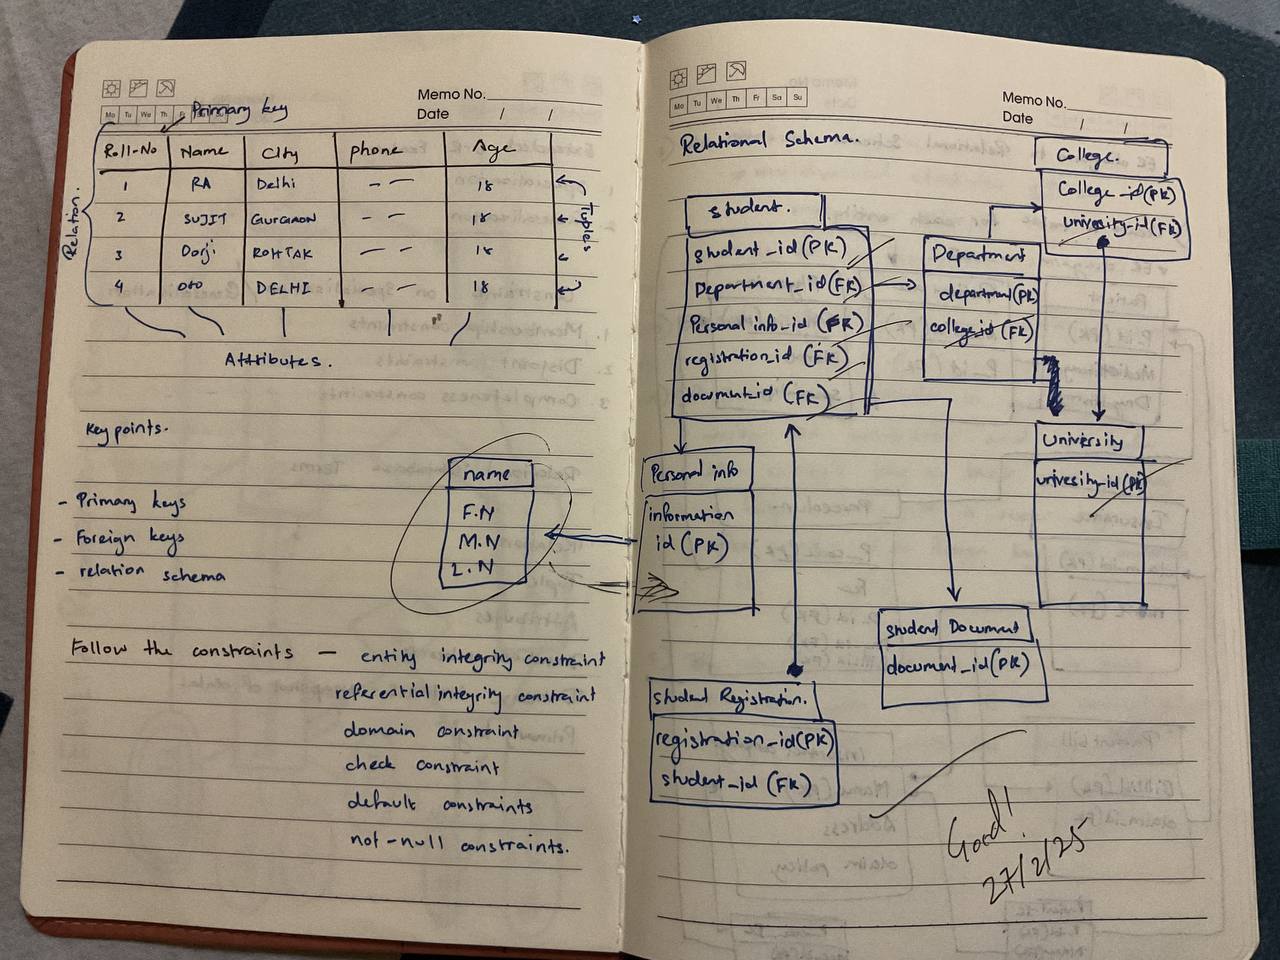 Memo No.
Mo Tu We Th F
Date / /
Primary key
Roll-No Name City phone Age
1 RA Delhi - - 18
2 SUJIT GURGAON - - 18
3 Dorji ROHTAK - - 18
4 DELHI - - 18
Relation.
Tuples
Attributes.
Key points.
- Primary keys
- Foreign keys
- relation schema
name
F.N
M.N
L.N
Follow the constraints - entity integrity constraint
referential integrity constraint
domain constraint
check constraint
default constraints
not-null constraints.
Memo No.
Mo Tu We Th Fr Sa Su
Date / /
Relational Schema.
College.
College_id(PK)
university_id(FK)
student.
student_id(PK)
Department_id(FK)
Personal info_id(FK)
registration_id(FK)
document_id(FK)
Department
department(PK)
college_id(FK)
University
univesity_id(PK)
Personal info
information
id(PK)
student Document
document_id(PK)
student Registration.
registration_id(PK)
student_id(FK)
Good!
27/2/25